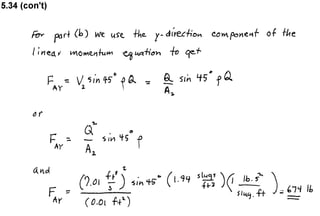 5.34 (con't)
For part (b) we use the y-direction component of the
linear momentum equation to get
F_AY = V_2 sin 45° ρQ = Q/A_2 sin 45° ρQ
or
F_AY = Q²/A_2 sin 45° ρ
and
F_AY = (7.01 ft³/s)² sin 45° (1.94 slugs/ft³)(1 lb.s²/slug.ft) / (0.01 ft²) = 674 lb